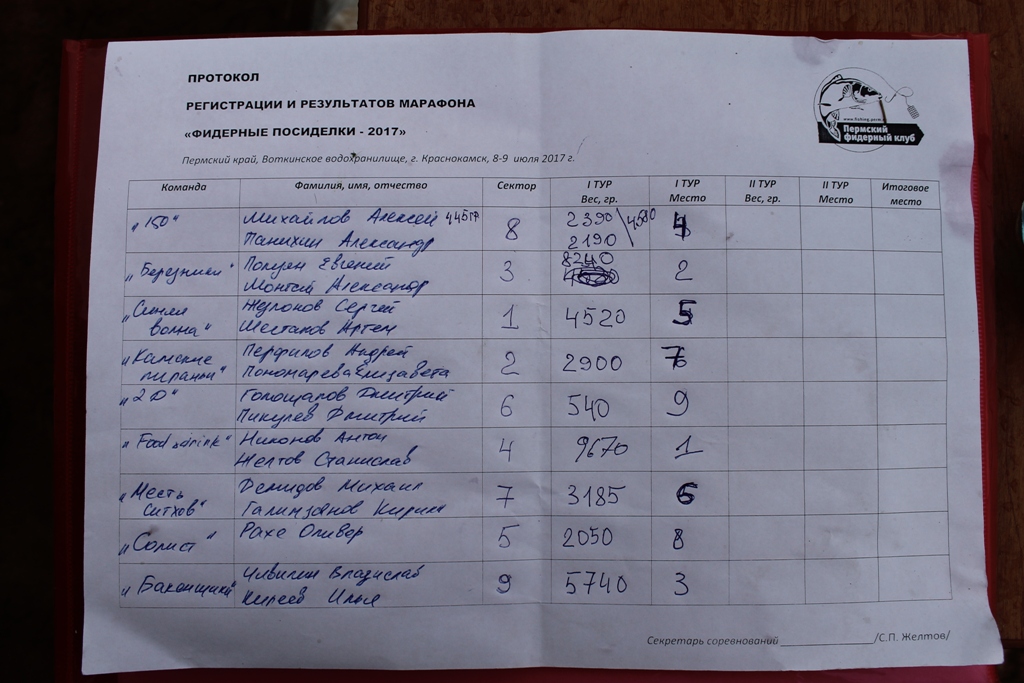 ПРОТОКОЛ
РЕГИСТРАЦИИ И РЕЗУЛЬТАТОВ МАРАФОНА
«ФИДЕРНЫЕ ПОСИДЕЛКИ - 2017»
Пермский край, Воткинское водохранилище, г. Краснокамск, 8-9 июля 2017 г.
www.fishing.perm
Пермский
фидерный клуб
Команда Фамилия, имя, отчество Сектор I ТУР Вес, гр. I ТУР Место II ТУР Вес, гр. II ТУР Место Итоговое место
„150“ Михайлов Алексей 445гр 8 2390 / 4580 4
Панихин Александр 2190
„Березники“ Полуян Евгений 3 8240 2
Александр
„Синяя Сергей 1 4520 5
волна“ Шестаков Артем
„Камские Перфилов Андрей 2 2900 7
пираньи“ Пономарева Елизавета
„2D“ Голощапов Дмитрий 6 540 9
Пикулев Дмитрий
„Food drink“ Никонов Антон 4 9670 1
Желтов Станислав
„Месть Демидов Михаил 7 3185 6
ситхов“ Галимзянов Кирилл
„Солист“ Рахе Оливер 5 2050 8
„Баканщики“ Чивилин Владислав 9 5740 3
Киреев Илья
Секретарь соревнований ________________/С.П. Желтов/